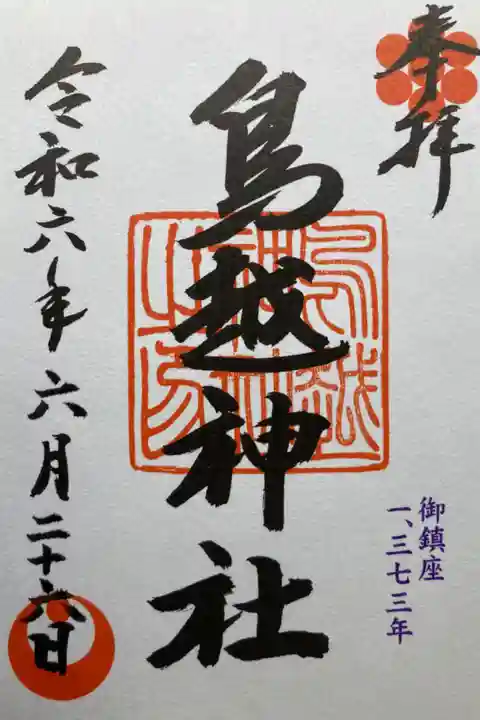 奉拝
鳥越神社
鳥越神社之印
御鎮座
一、三七三年
令和六年六月二十六日